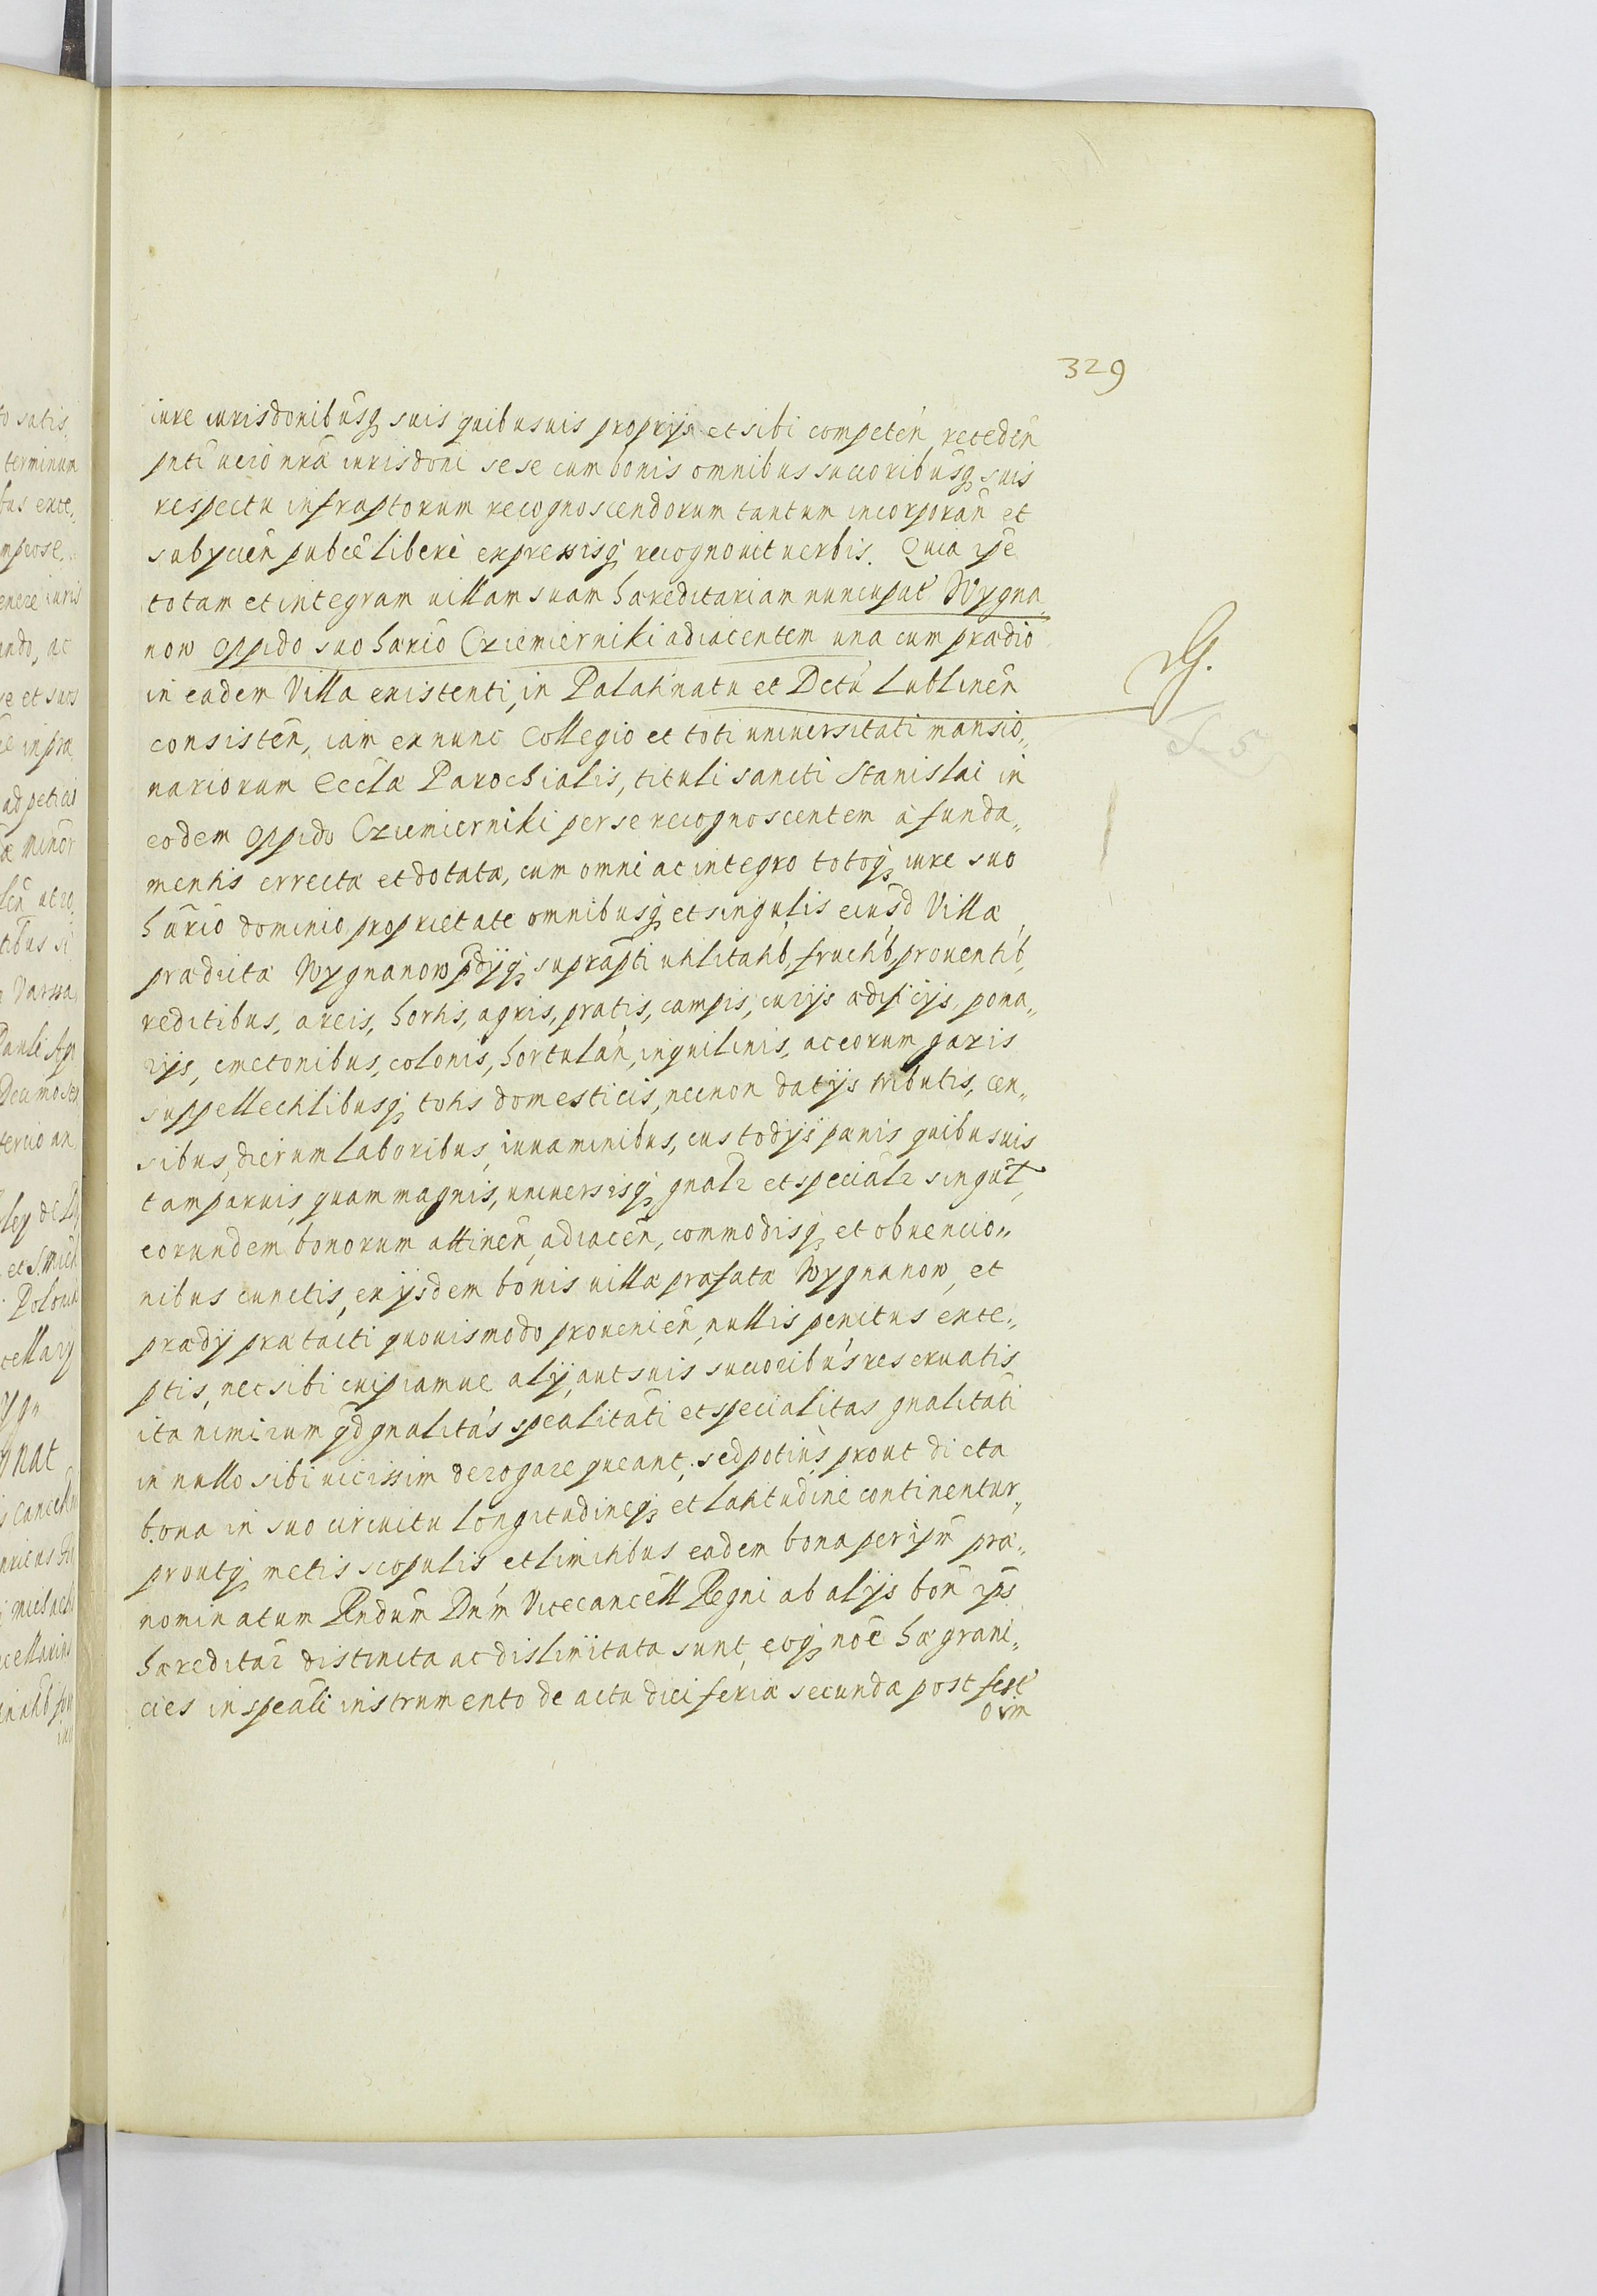 329
iure iurisdonibusq suis quibusuis proprijs et sibi competeń receden̄
pnti ucro nrā iurisdoni sese cum bonis omnibus succoribusq suis
respectu infraptorum recognoscendorum tantum incorporan̄ et
subycien̄ pubcē liberè expressisq recognouit uerbis. Quia ipē
totam et integram uillam suam hæreditariam nuncupat Wygna,
now oppido suo hario Cziemierniki adiacentem una cum prædio
in eadem Villa existenti, in Palatinatu et Dctú Lublinen̄
consisten̄, iam ex nunc Collegio et toti uniuersitati mansio„
nariorum Eccla Parochialis, tituli sancti Stanislai in
eodem oppido Cziemierniki per se recognoscentem à funda„
mentis errectæ et dotatæ, cum omni ac integro totoq iure suo
hario dominio proprietate omnibusq et singulis eiusd Villæ
prædictæ Wygnanow pdijq suprapti utilitatib, fructib, prouentib,
reditibus, areis, hortis, agris, pratis, campis, curijs ædificijs, poma„
rijs, cmetonibus, colonis, hortulan̄, inquilinis, ac eorum gazis
suppellectilibusq totis domesticis, necnon datijs tributis, cen„
sibus, dierum laboribus, iuuaminibus, custodijs pænis quibusuis
tam paruis quam magnis, uniuersisq gnalr et specialr singul,
eorundem bonorum attinen̄ adiacen̄, commodisq et obuencio„
nibus cunctis, ex ijsdem bonis uillæ præfatæ Wygnanow, et
prædij prætacti quouismodo prouenien̄, nullis penitus exce„
ptis, nec sibi cuipiamue alij, aut suis succoribus reseruatis
ita nimirum qd gnalitas spealitati et specialitas gnalitati
in nullo sibi uicissim derogare queant, sed potius prout dicta
bona in suo circuitu longitudineq et latitudine continentur„
proutq metis scopulis et limitibus eadem bona per ipm præ„
nominatum Rndum Dnm Vicecancell Regni ab alijs bon̄ ips
hæreditar distincta ac dislimitata sunt, eoq noē hæ grani„
cies in speali instrumento de actu diei feriæ secunda post fest
Orm